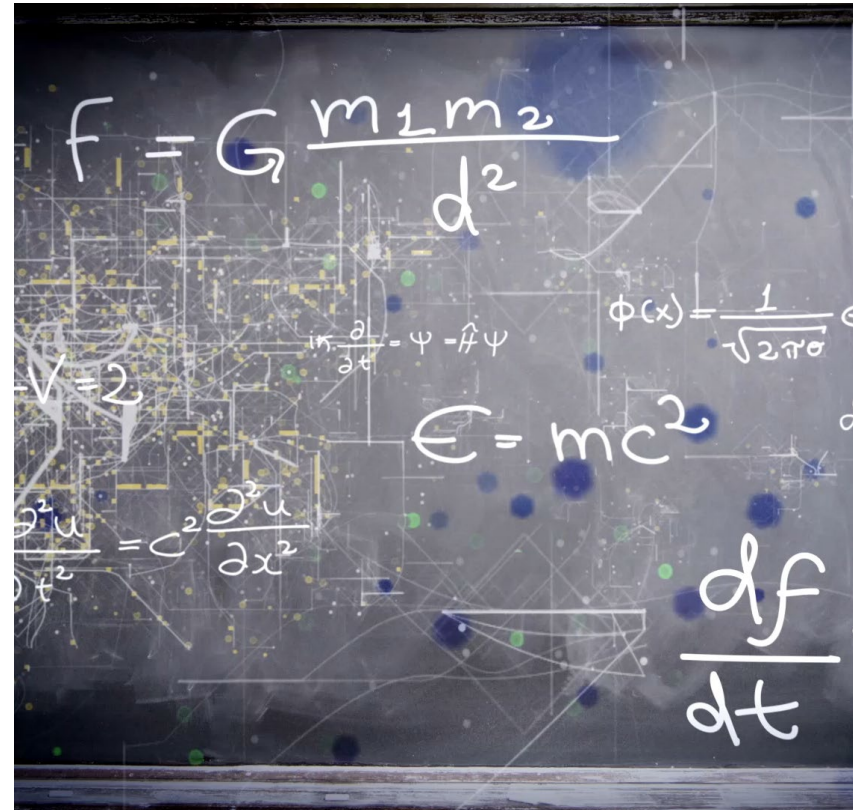 F = G m1m2 / d²
ϕ(x) = 1 / √2πσ e
iℏ ∂ / ∂t = Ψ = Ĥ Ψ
-V = 2
E = mc²
∂²u / ∂t² = c² ∂²u / ∂x²
df / dt